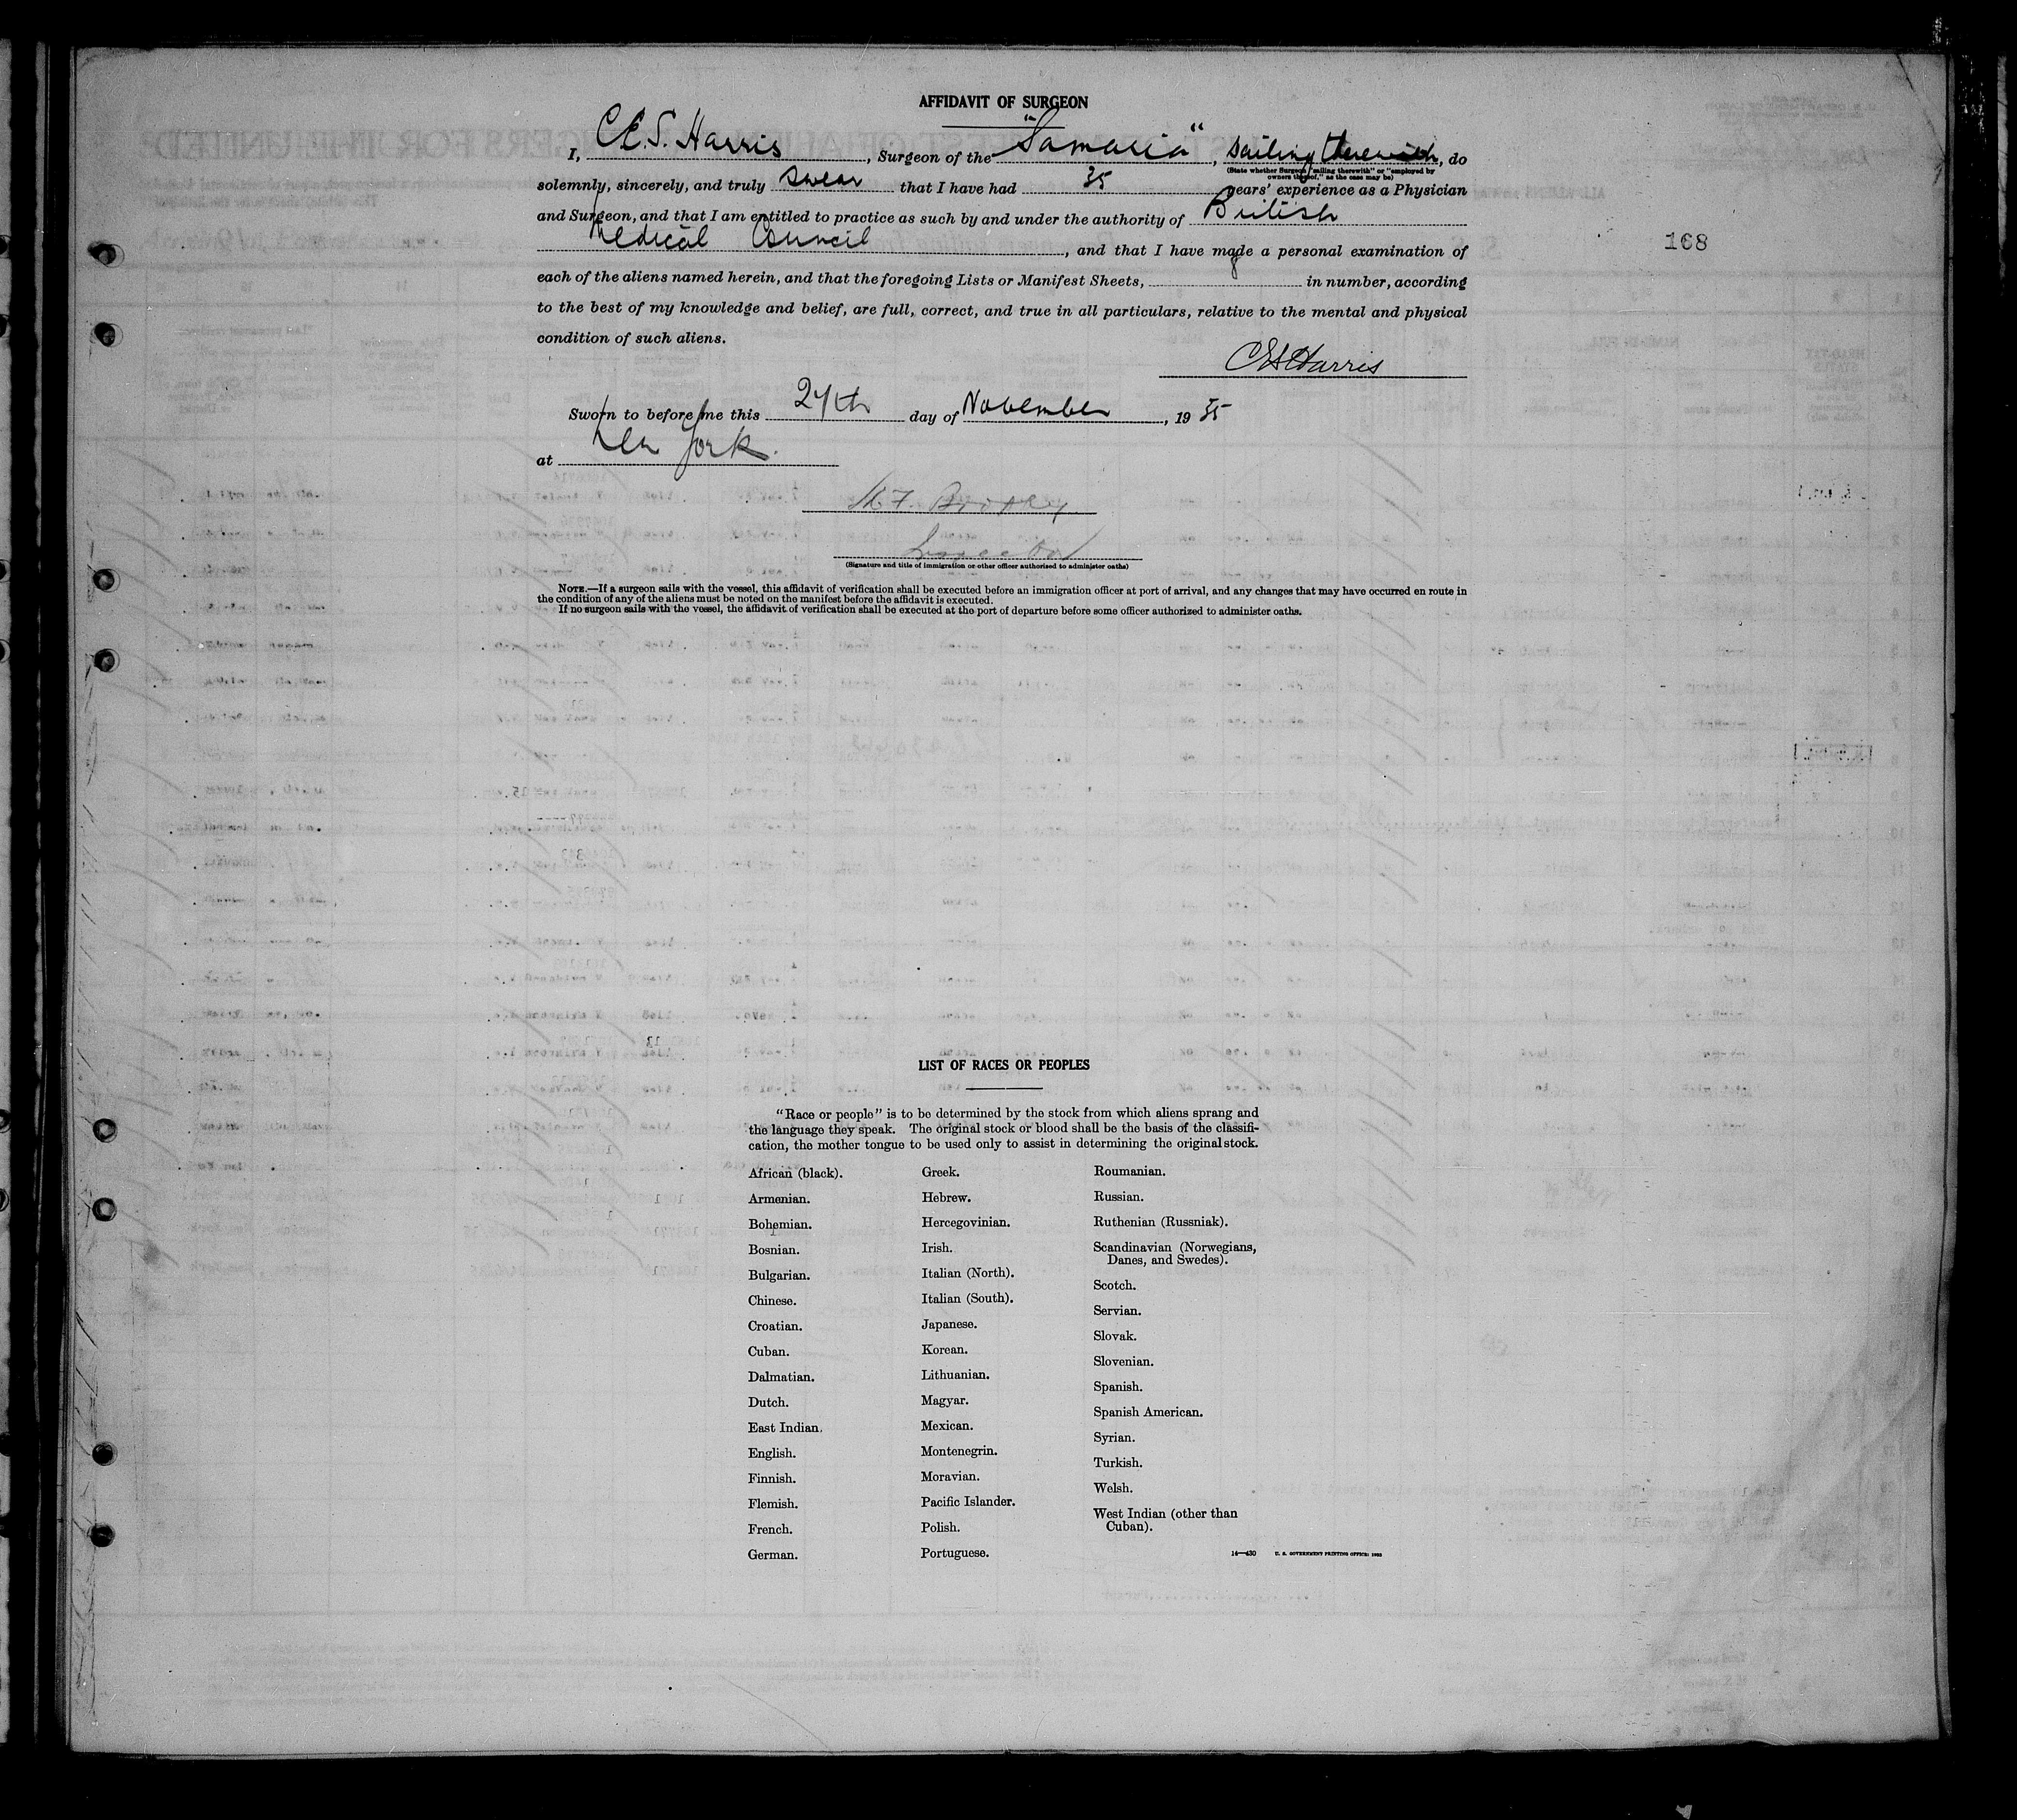 AFFIDAVIT OF SURGEON
I, C.E.S. Harris, Surgeon of the "Samaria", sailing therewith, do
(State whether Surgeon "sailing therewith" or "employed by
owners thereof," as the case may be)
solemnly, sincerely, and truly swear that I have had 35 years' experience as a Physician
and Surgeon, and that I am entitled to practice as such by and under the authority of British
Medical Council, and that I have made a personal examination of
168
each of the aliens named herein, and that the foregoing Lists or Manifest Sheets, 8 in number, according
to the best of my knowledge and belief, are full, correct, and true in all particulars, relative to the mental and physical
condition of such aliens.
CES Harris
Sworn to before me this 24th day of November, 1935
at New York.
Inspector
(Signature and title of immigration or other officer authorized to administer oaths)
NOTE.—If a surgeon sails with the vessel, this affidavit of verification shall be executed before an immigration officer at port of arrival, and any changes that may have occurred en route in
the condition of any of the aliens must be noted on the manifest before the affidavit is executed.
If no surgeon sails with the vessel, the affidavit of verification shall be executed at the port of departure before some officer authorized to administer oaths.
LIST OF RACES OR PEOPLES
"Race or people" is to be determined by the stock from which aliens sprang and
the language they speak. The original stock or blood shall be the basis of the classifi-
cation, the mother tongue to be used only to assist in determining the original stock.
African (black).
Armenian.
Bohemian.
Bosnian.
Bulgarian.
Chinese.
Croatian.
Cuban.
Dalmatian.
Dutch.
East Indian.
English.
Finnish.
Flemish.
French.
German.
Greek.
Hebrew.
Hercegovinian.
Irish.
Italian (North).
Italian (South).
Japanese.
Korean.
Lithuanian.
Magyar.
Mexican.
Montenegrin.
Moravian.
Pacific Islander.
Polish.
Portuguese.
Roumanian.
Russian.
Ruthenian (Russniak).
Scandinavian (Norwegians,
Danes, and Swedes).
Scotch.
Servian.
Slovak.
Slovenian.
Spanish.
Spanish American.
Syrian.
Turkish.
Welsh.
West Indian (other than
Cuban).
14—430 U. S. GOVERNMENT PRINTING OFFICE: